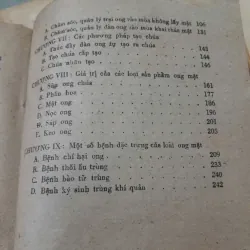 A. Chăm sóc, quản lý trại ong vào mùa không lấy mật 106
B. Chăm sóc, quản lý đàn ong vào mùa khai thác mật 131
CHƯƠNG VII : Các phương pháp tạo chúa
A. Thúc đẩy đàn ong tự tạo chúa 141
B. Tạo chúa cấp tạo 144
C. Chúa nhân tạo 146
CHƯƠNG VIII : Giá trị của các loại sản phẩm ong mật
A. Sáp ong 161
B. Phấn hoa 177
C. Mật ong 186
D. Nọc ong 196
E. Sữa ong 201
G. Keo ong 205
CHƯƠNG IX : Một số bệnh đặc trưng của loài ong mật
A. Bệnh chí hại ong 209
B. Bệnh thối ấu trùng 233
C. Bệnh bào tử trùng 240
D. Bệnh ký sinh trùng khí quản 242